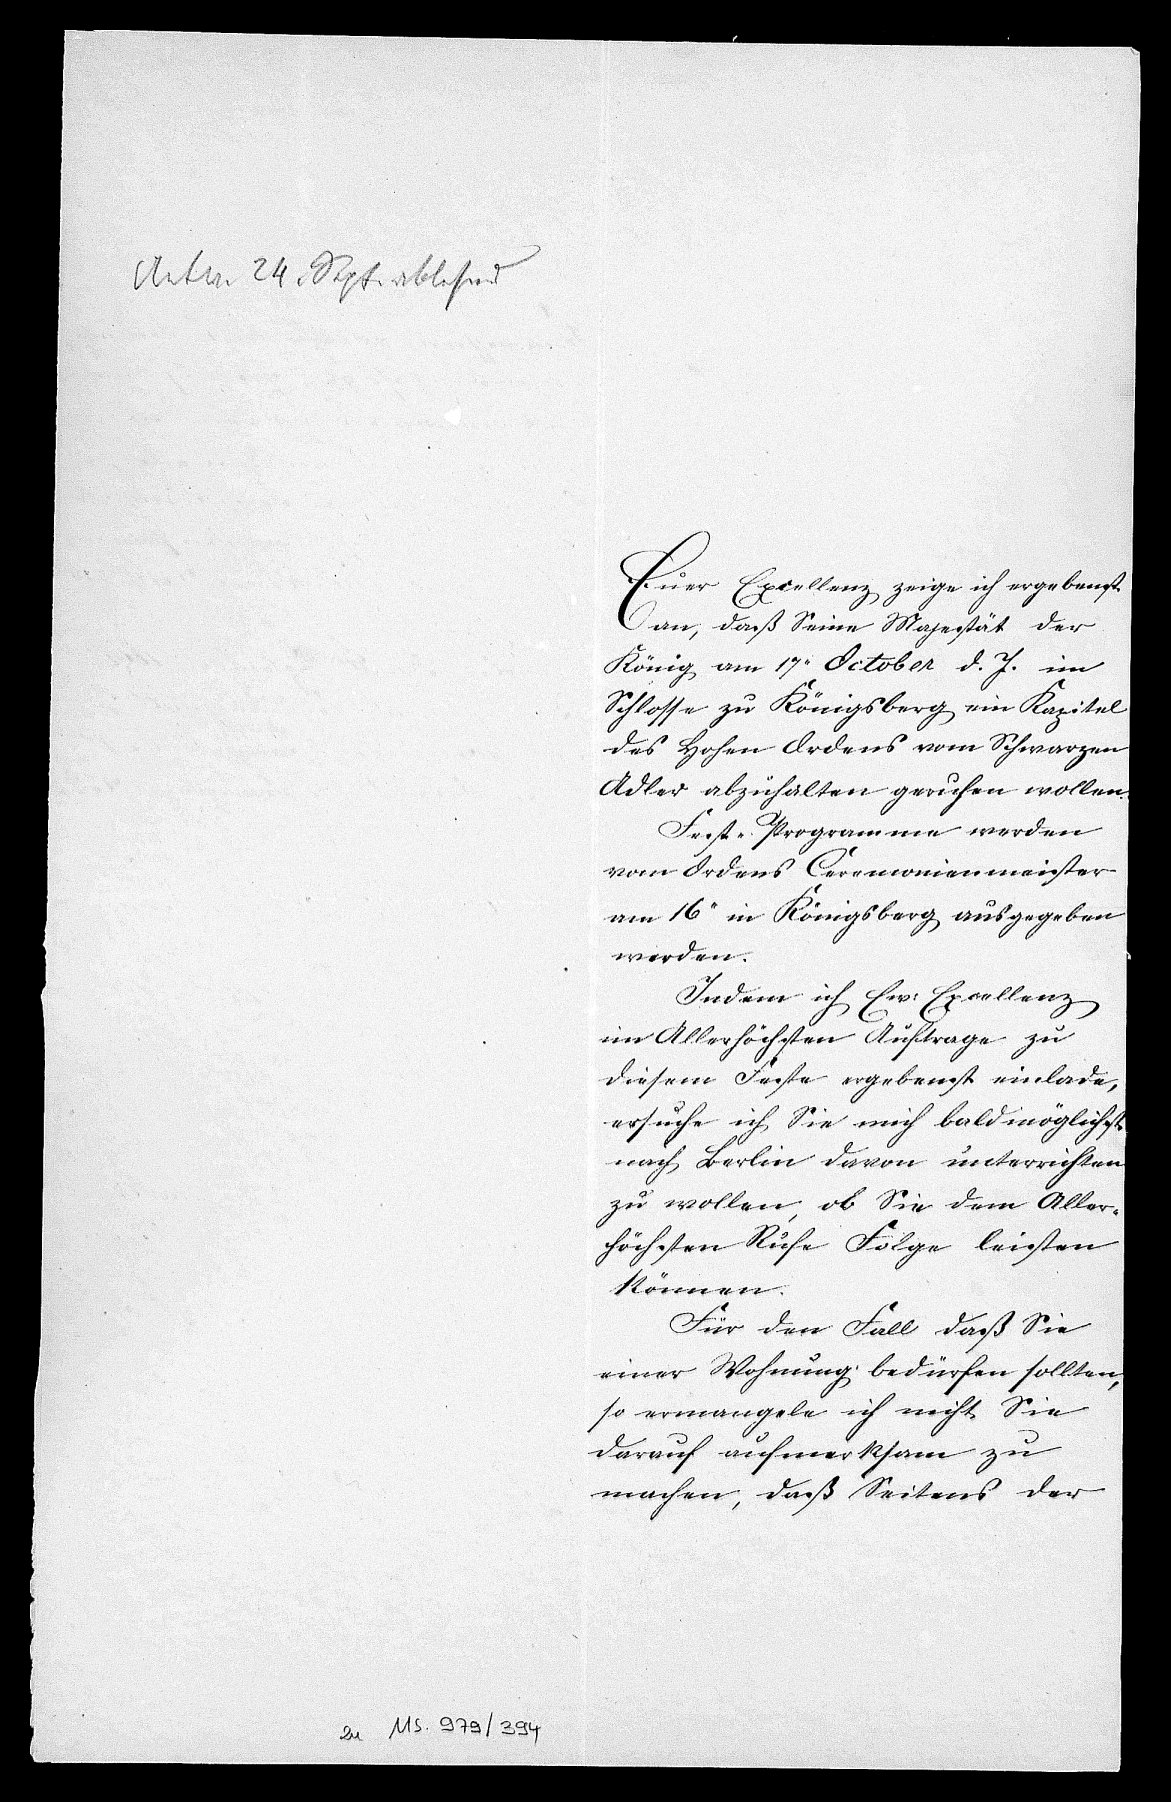 Antw. 24. Sept. ablehnend
Euer Excellenz zeige ich ergebenst
an, daß Seine Majestät der
König am 17" October d. J. im
Schlosse zu Königsberg ein Kapitel
des Hohen Ordens vom Schwarzen
Adler abzuhalten geruhen wollen.
Fest-Programme werden
vom Ordens Ceremonienmeister
am 16" in Königsberg ausgegeben
werden.
Indem ich Ew: Excellenz
im Allerhöchsten Auftrage zu
diesem Feste ergebenst einlade,
ersuche ich Sie mich baldmöglichst
nach Berlin davon unterrichten
zu wollen, ob Sie dem Aller-
höchsten Rufe Folge leisten
können.
Für den Fall daß Sie
einer Wohnung bedürfen sollten,
so ermangele ich nicht Sie
darauf aufmerksam zu
machen, daß Seitens der
zu Ms. 979/394